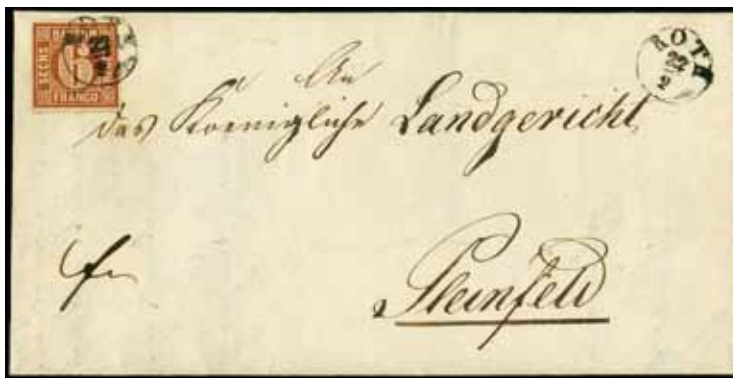 SECHS
6
FRANCO
22
2
ROTH
22
2
An
das Koenigliche Landgericht
Pleinfeld